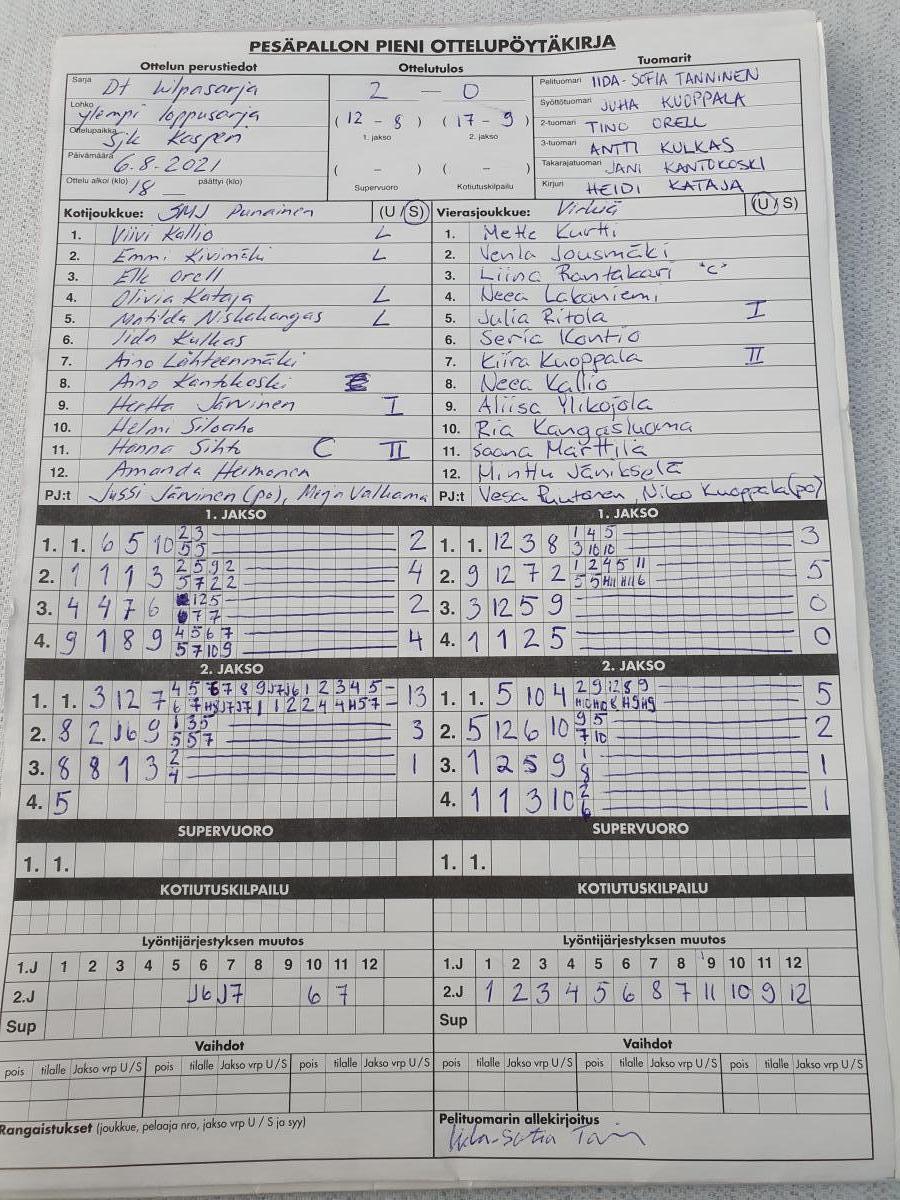 PESÄPALLON PIENI OTTELUPÖYTÄKIRJA
Ottelun perustiedot Ottelutulos Tuomarit
Sarja Dt kilpasarja 2 — 0 Pelituomari IIDA-SOFIA TANNINEN
Lohko ylempi loppusarja (12 - 8) (17 - 9) Syöttötuomari JUHA KUOPPALA
Ottelupaikka Sjk Kasperi 1. jakso 2. jakso 2-tuomari TINO ORELL
Päivämäärä 6.8.2021 ( - ) ( - ) 3-tuomari ANTTI KULKAS
Ottelu alkoi (klo) 18 päättyi (klo) Takarajatuomari JANI KANTOKOSKI
Supervuoro Kotiutuskilpailu Kirjuri HEIDI KATAJA
Kotijoukkue: SMJ Punainen (U/S) Vierasjoukkue: Virkiä (U/S)
1. Viivi Kallio L 1. Mette Kurtti
2. Emmi Kivimäki L 2. Venla Jousmäki
3. Elle Orell 3. Liina Rantakari "C"
4. Olivia Kataja L 4. Neea Lakaniemi
5. Matilda Niskakangas L 5. Julia Ritola I
6. Iida Kulkas 6. Seria Kontio
7. Aino Lähteenmäki 7. Kiira Kuoppala II
8. Aino Kantokoski 8. Neea Kallio
9. Hertta Järvinen I 9. Aliisa Ylikojola
10. Helmi Siloaho 10. Ria Kangasluoma
11. Hanna Sihto C II 11. Saana Märttilä
12. Amanda Heimonen 12. Minttu Jänikselä
PJ:t Jussi Järvinen (po), Merja Valkama PJ:t Vesa Ruutonen, Niko Kuoppala (po)
1. JAKSO 1. JAKSO
1. 1. 6 5 10 2 3 2 1. 1. 12 3 8 1 4 5 3
5 5 3 10 10
2. 1 1 1 3 2 5 9 2 4 2. 9 12 7 2 1 2 4 5 11 5
5 7 2 2 5 5 H11 H11 6
3. 4 4 7 6 1 2 5 2 3. 3 12 5 9 0
7 7
4. 9 1 8 9 4 5 6 7 4 4. 1 1 2 5 0
5 7 10 9
2. JAKSO 2. JAKSO
1. 1. 3 12 7 4 5 6 7 8 9 J7 J6 1 2 3 4 5 - 13 1. 1. 5 10 4 2 9 12 8 9 5
6 7 H8 J7 J7 1 1 2 2 4 4 H5 7 - H10 H10 8 H9 H9
2. 8 2 J6 9 1 3 5 3 2. 5 12 6 10 9 5 2
5 5 7 7 10
3. 8 8 1 3 2 1 3. 1 2 5 9 1 1
4 8
4. 5 4. 1 1 3 10 2 1
6
SUPERVUORO SUPERVUORO
1. 1. 1. 1.
KOTIUTUSKILPAILU KOTIUTUSKILPAILU
Lyöntijärjestyksen muutos Lyöntijärjestyksen muutos
1.J 1 2 3 4 5 6 7 8 9 10 11 12 1.J 1 2 3 4 5 6 7 8 9 10 11 12
2.J J6 J7 6 7 2.J 1 2 3 4 5 6 8 7 11 10 9 12
Sup Sup
Vaihdot Vaihdot
pois tilalle Jakso vrp U/S pois tilalle Jakso vrp U/S pois tilalle Jakso vrp U/S pois tilalle Jakso vrp U/S pois tilalle Jakso vrp U/S pois tilalle Jakso vrp U/S
Rangaistukset (joukkue, pelaaja nro, jakso vrp U / S ja syy) Pelituomarin allekirjoitus
Iida-Sofia